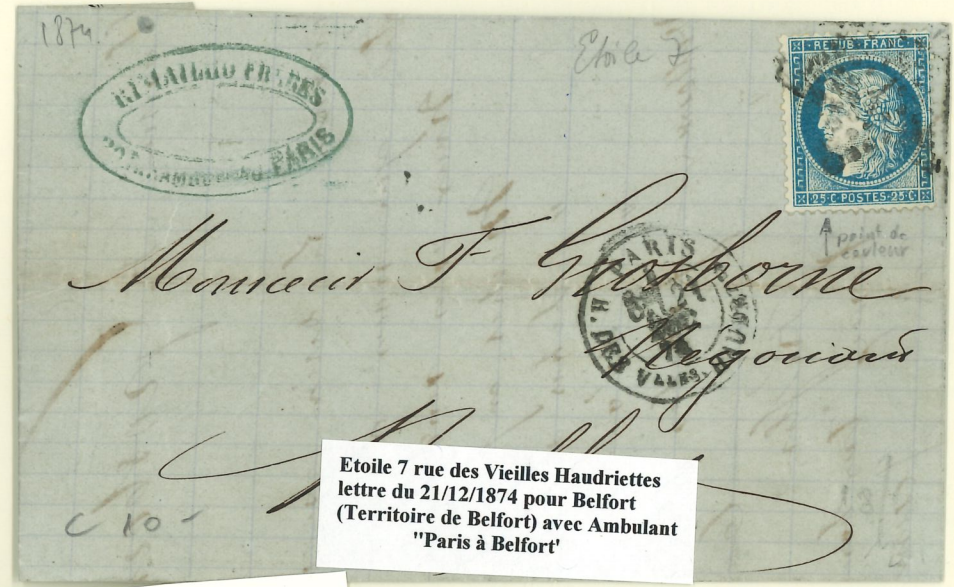 1874
Etoile 7
FRERES
PARIS
REPUB·FRANC
25·C·POSTES·25·C
point de
couleur
Monsieur F Grosborne
PARIS
R. DES VLLES HAUD
Négociant
Etoile 7 rue des Vieilles Haudriettes
lettre du 21/12/1874 pour Belfort
(Territoire de Belfort) avec Ambulant
"Paris à Belfort'
C 10 -